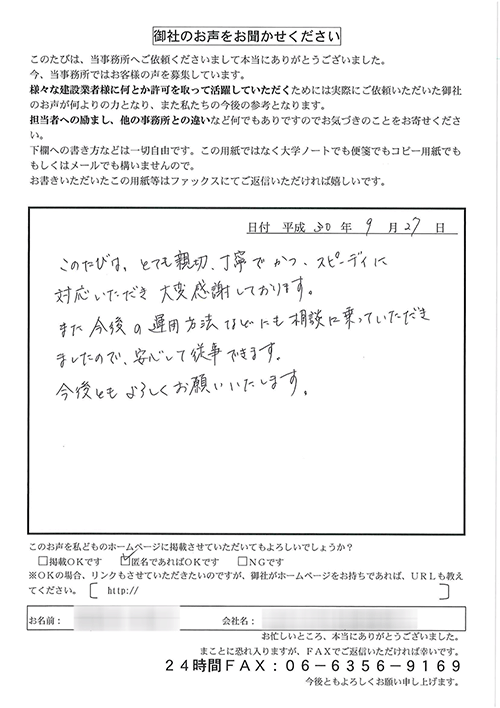 御社のお声をお聞かせください
このたびは、当事務所へご依頼くださいまして本当にありがとうございました。
今、当事務所ではお客様の声を募集しています。
様々な建設業者様に何とか許可を取って活躍していただくためには実際にご依頼いただいた御社
のお声が何よりの力となり、また私たちの今後の参考となります。
担当者への励まし、他の事務所との違いなど何でもありですのでお気づきのことをお寄せくださ
い。
下欄への書き方などは一切自由です。この用紙ではなく大学ノートでも便箋でもコピー用紙でも
もしくはメールでも構いませんので。
お書きいただいたこの用紙等はファックスにてご返信いただければ嬉しいです。
日付 平成 30 年 9 月 27 日
このたびは、とても親切、丁寧でかつ、スピーディに
対応いただき 大変感謝しております。
また今後の運用方法などにも相談に乗っていただき
ましたので、安心して従事できます。
今後とも よろしくお願いいたします。
このお声を私どものホームページに掲載させていただいてもよろしいでしょうか？
□掲載ＯＫです ☑匿名であればＯＫです □ＮＧです
※ＯＫの場合、リンクもさせていただきたいのですが、御社がホームページをお持ちであれば、ＵＲＬも教え
てください。 [ http:// ]
お名前： 会社名：
お忙しいところ、本当にありがとうございました。
まことに恐れ入りますが、ＦＡＸでご返信いただければ幸いです。
２４時間ＦＡＸ：０６－６３５６－９１６９
今後ともよろしくお願い申し上げます。